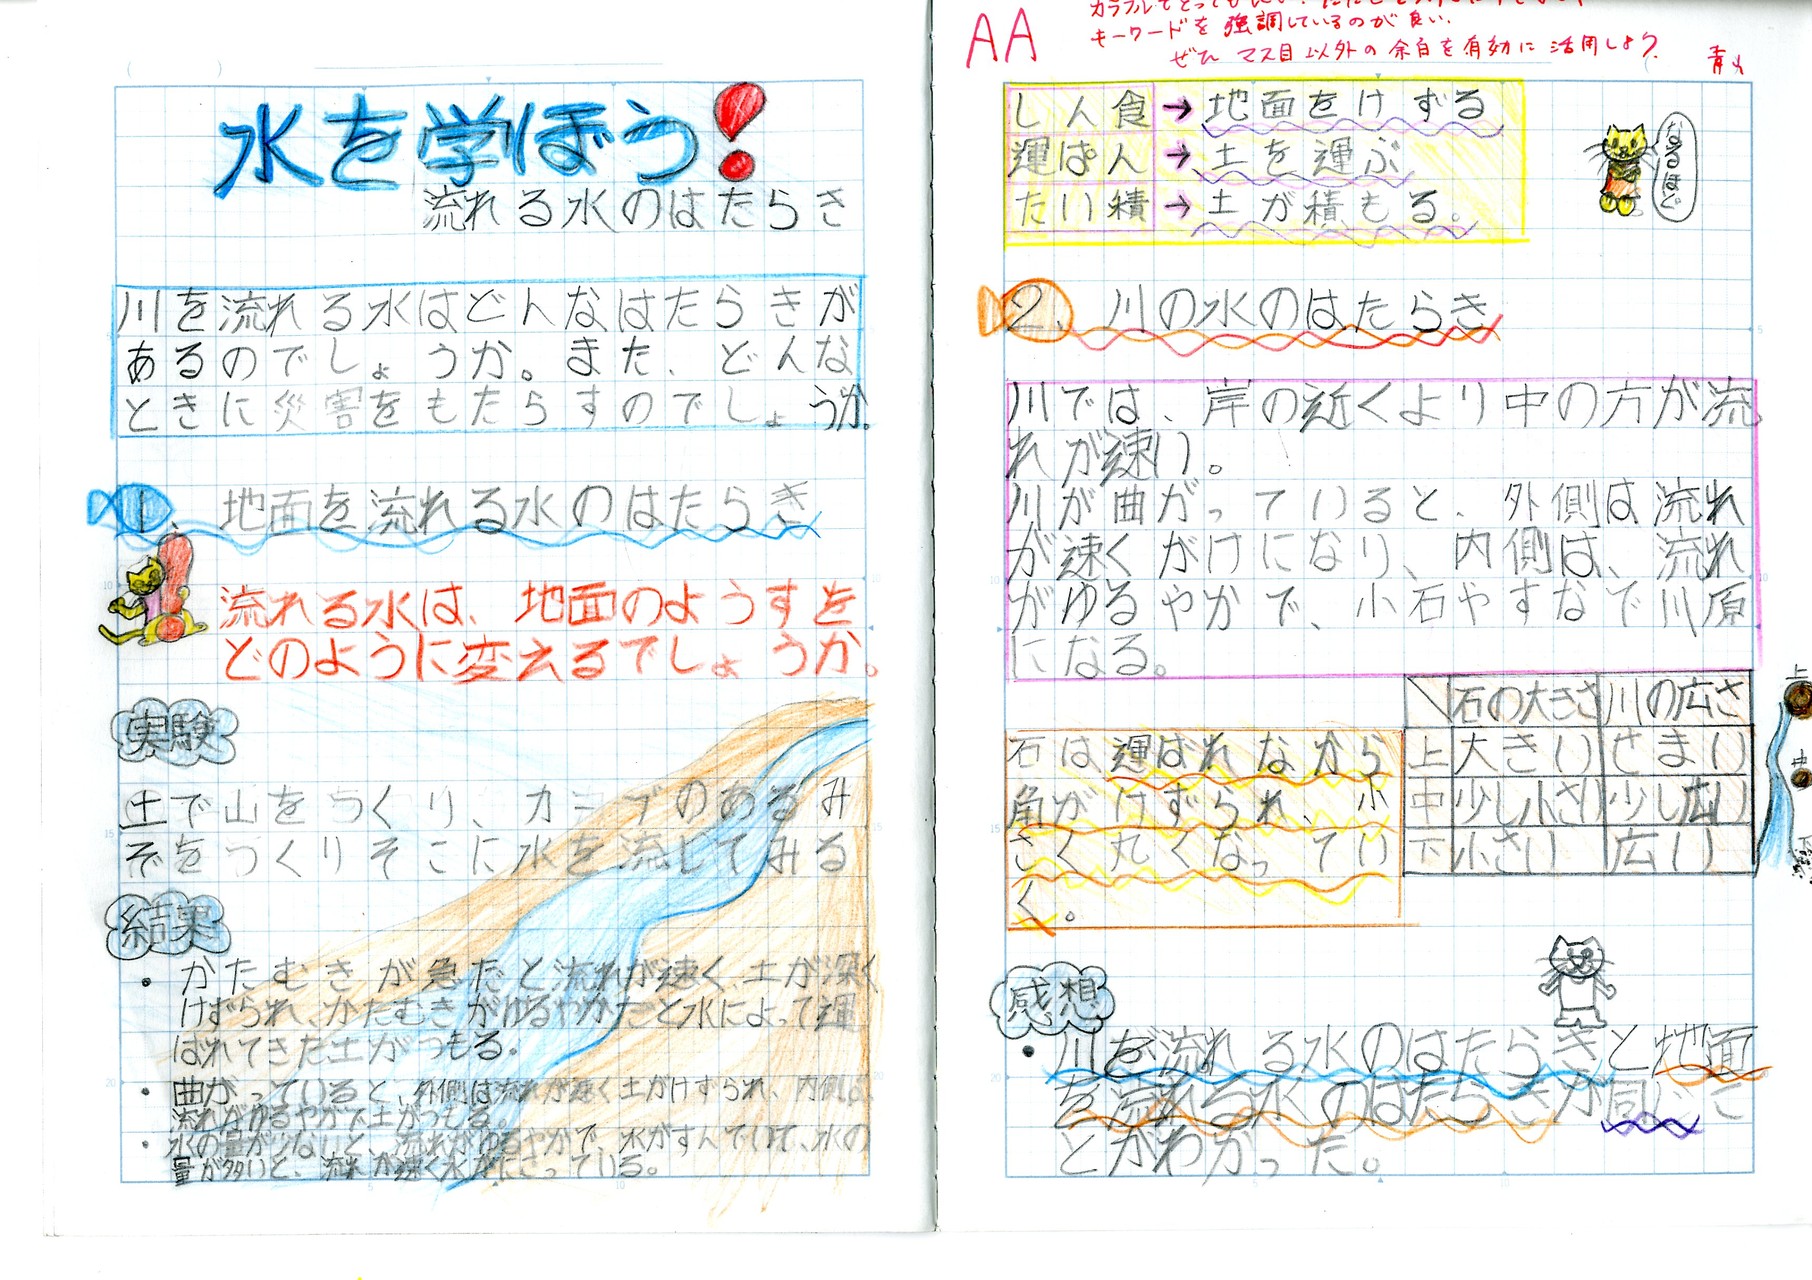 水を学ぼう!
流れる水のはたらき
川を流れる水はどんなはたらきが
あるのでしょうか。また、どんな
ときに災害をもたらすのでしょうか。
1. 地面を流れる水のはたらき
流れる水は、地面のようすを
どのように変えるでしょうか。
実験
土で山をつくり、カーブのあるみ
ぞをつくりそこに水を流してみる
結果
・かたむきが急だと流れが速く、土が深く
けずられ、かたむきがゆるやかだと水によって運
ばれてきた土がつもる。
・曲がっていると、外側は流れが速く土がけずられ、内側は、
流れがゆるやかで土がつもる。
・水の量が少ないと、流れがゆるやかで、水がすんでいて、水の
量が多いと、流れが速く水がにごっている。
AA
キーワードを強調しているのが良い.
ぜひマス目以外の余白を有効に活用しよう.
しん食→地面をけずる
運ぱん→土を運ぶ
たい積→土が積もる。
なるほど。
2. 川の水のはたらき
川では、岸の近くより中の方が流
れが速い。
川が曲がっていると、外側は流れ
が速くがけになり、内側は、流れ
がゆるやかで、小石やすなで川原
になる。
石の大きさ 川の広さ
上 大きい せまい
中 少し小さい 少し広い
下 小さい 広い
上
中
下
石は運ばれながら
角がけずられ、小
さく丸くなってい
く。
感想
・川を流れる水のはたらきと地面
を流れる水のはたらきが同じこ
とがわかった。